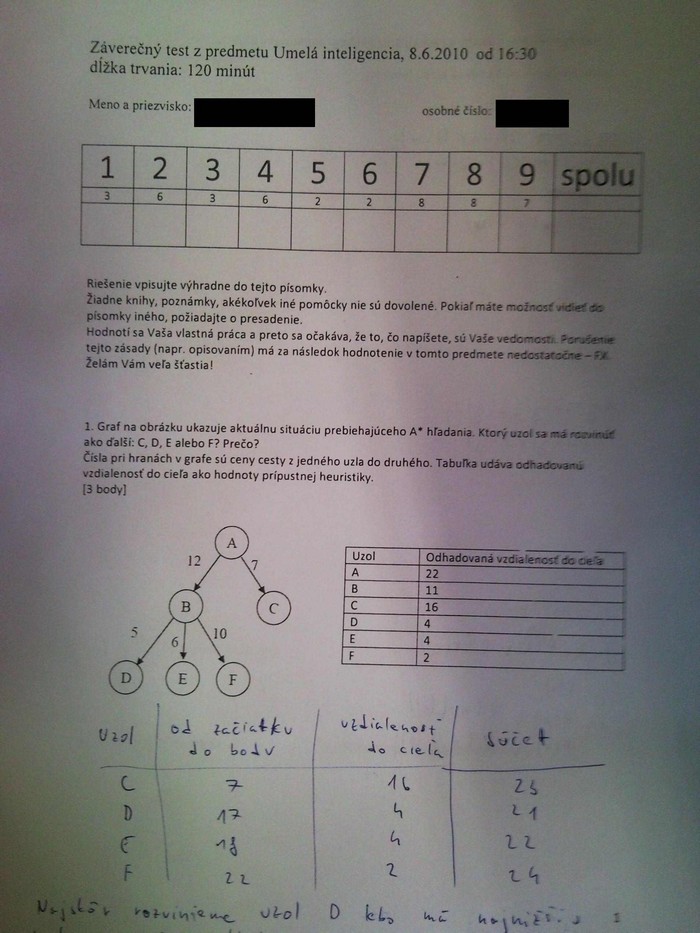 Záverečný test z predmetu Umelá inteligencia, 8.6.2010 od 16:30
dĺžka trvania: 120 minút
Meno a priezvisko: osobné číslo:
1 2 3 4 5 6 7 8 9 spolu
3 6 3 6 2 2 8 8 7
Riešenie vpisujte výhradne do tejto písomky.
Žiadne knihy, poznámky, akékoľvek iné pomôcky nie sú dovolené. Pokiaľ máte možnosť vidieť do
písomky iného, požiadajte o presadenie.
Hodnotí sa Vaša vlastná práca a preto sa očakáva, že to, čo napíšete, sú Vaše vedomosti. Porušenie
tejto zásady (napr. opisovaním) má za následok hodnotenie v tomto predmete nedostatočne – FX.
Želám Vám veľa šťastia!
1. Graf na obrázku ukazuje aktuálnu situáciu prebiehajúceho A* hľadania. Ktorý uzol sa má rozvinúť
ako ďalší: C, D, E alebo F? Prečo?
Čísla pri hranách v grafe sú ceny cesty z jedného uzla do druhého. Tabuľka udáva odhadovanú
vzdialenosť do cieľa ako hodnoty prípustnej heuristiky.
[3 body]
A
12 7
B C
5 6 10
D E F
Uzol Odhadovaná vzdialenosť do cieľa
A 22
B 11
C 16
D 4
E 4
F 2
Uzol od začiatku do bodu vzdialenosť do cieľa súčet
C 7 16 23
D 17 4 21
E 18 4 22
F 22 2 24
Najskôr rozvinieme uzol D lebo má